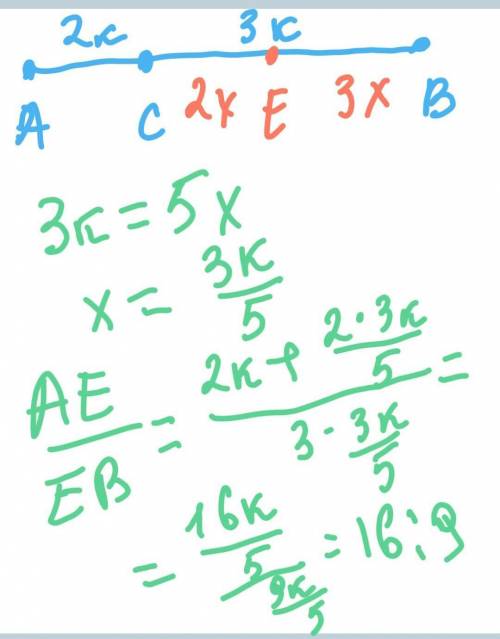 2к 3к
A C 2x E 3x B
3к = 5x
x = 3к/5
AE/EB = (2к + (2·3к)/5)/(3·3к/5) =
= (16к/5)/(9к/5) = 16:9